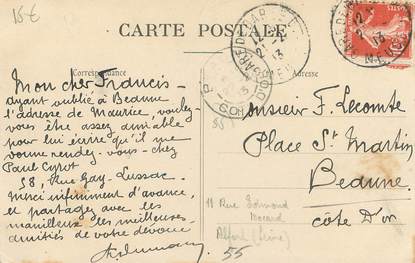 15€
CARTE POSTALE
Correspondance
Mon cher Francis -
ayant oublié à Beaune
l'adresse de Maurice, voulez-
vous être assez aimable
pour lui écrire qu'il me
donne rendez-vous - chez
Paul Cyrot
58, Rue Gay-Lussac.
Merci infiniment d'avance,
et partagez avec les
les meilleures
amitiés de votre dévoué
Monsieur F. Lecomte
Place St Martin
Beaune
Côte d'Or
11 Rue Edmond
Nocard
Alfort (Seine)
55